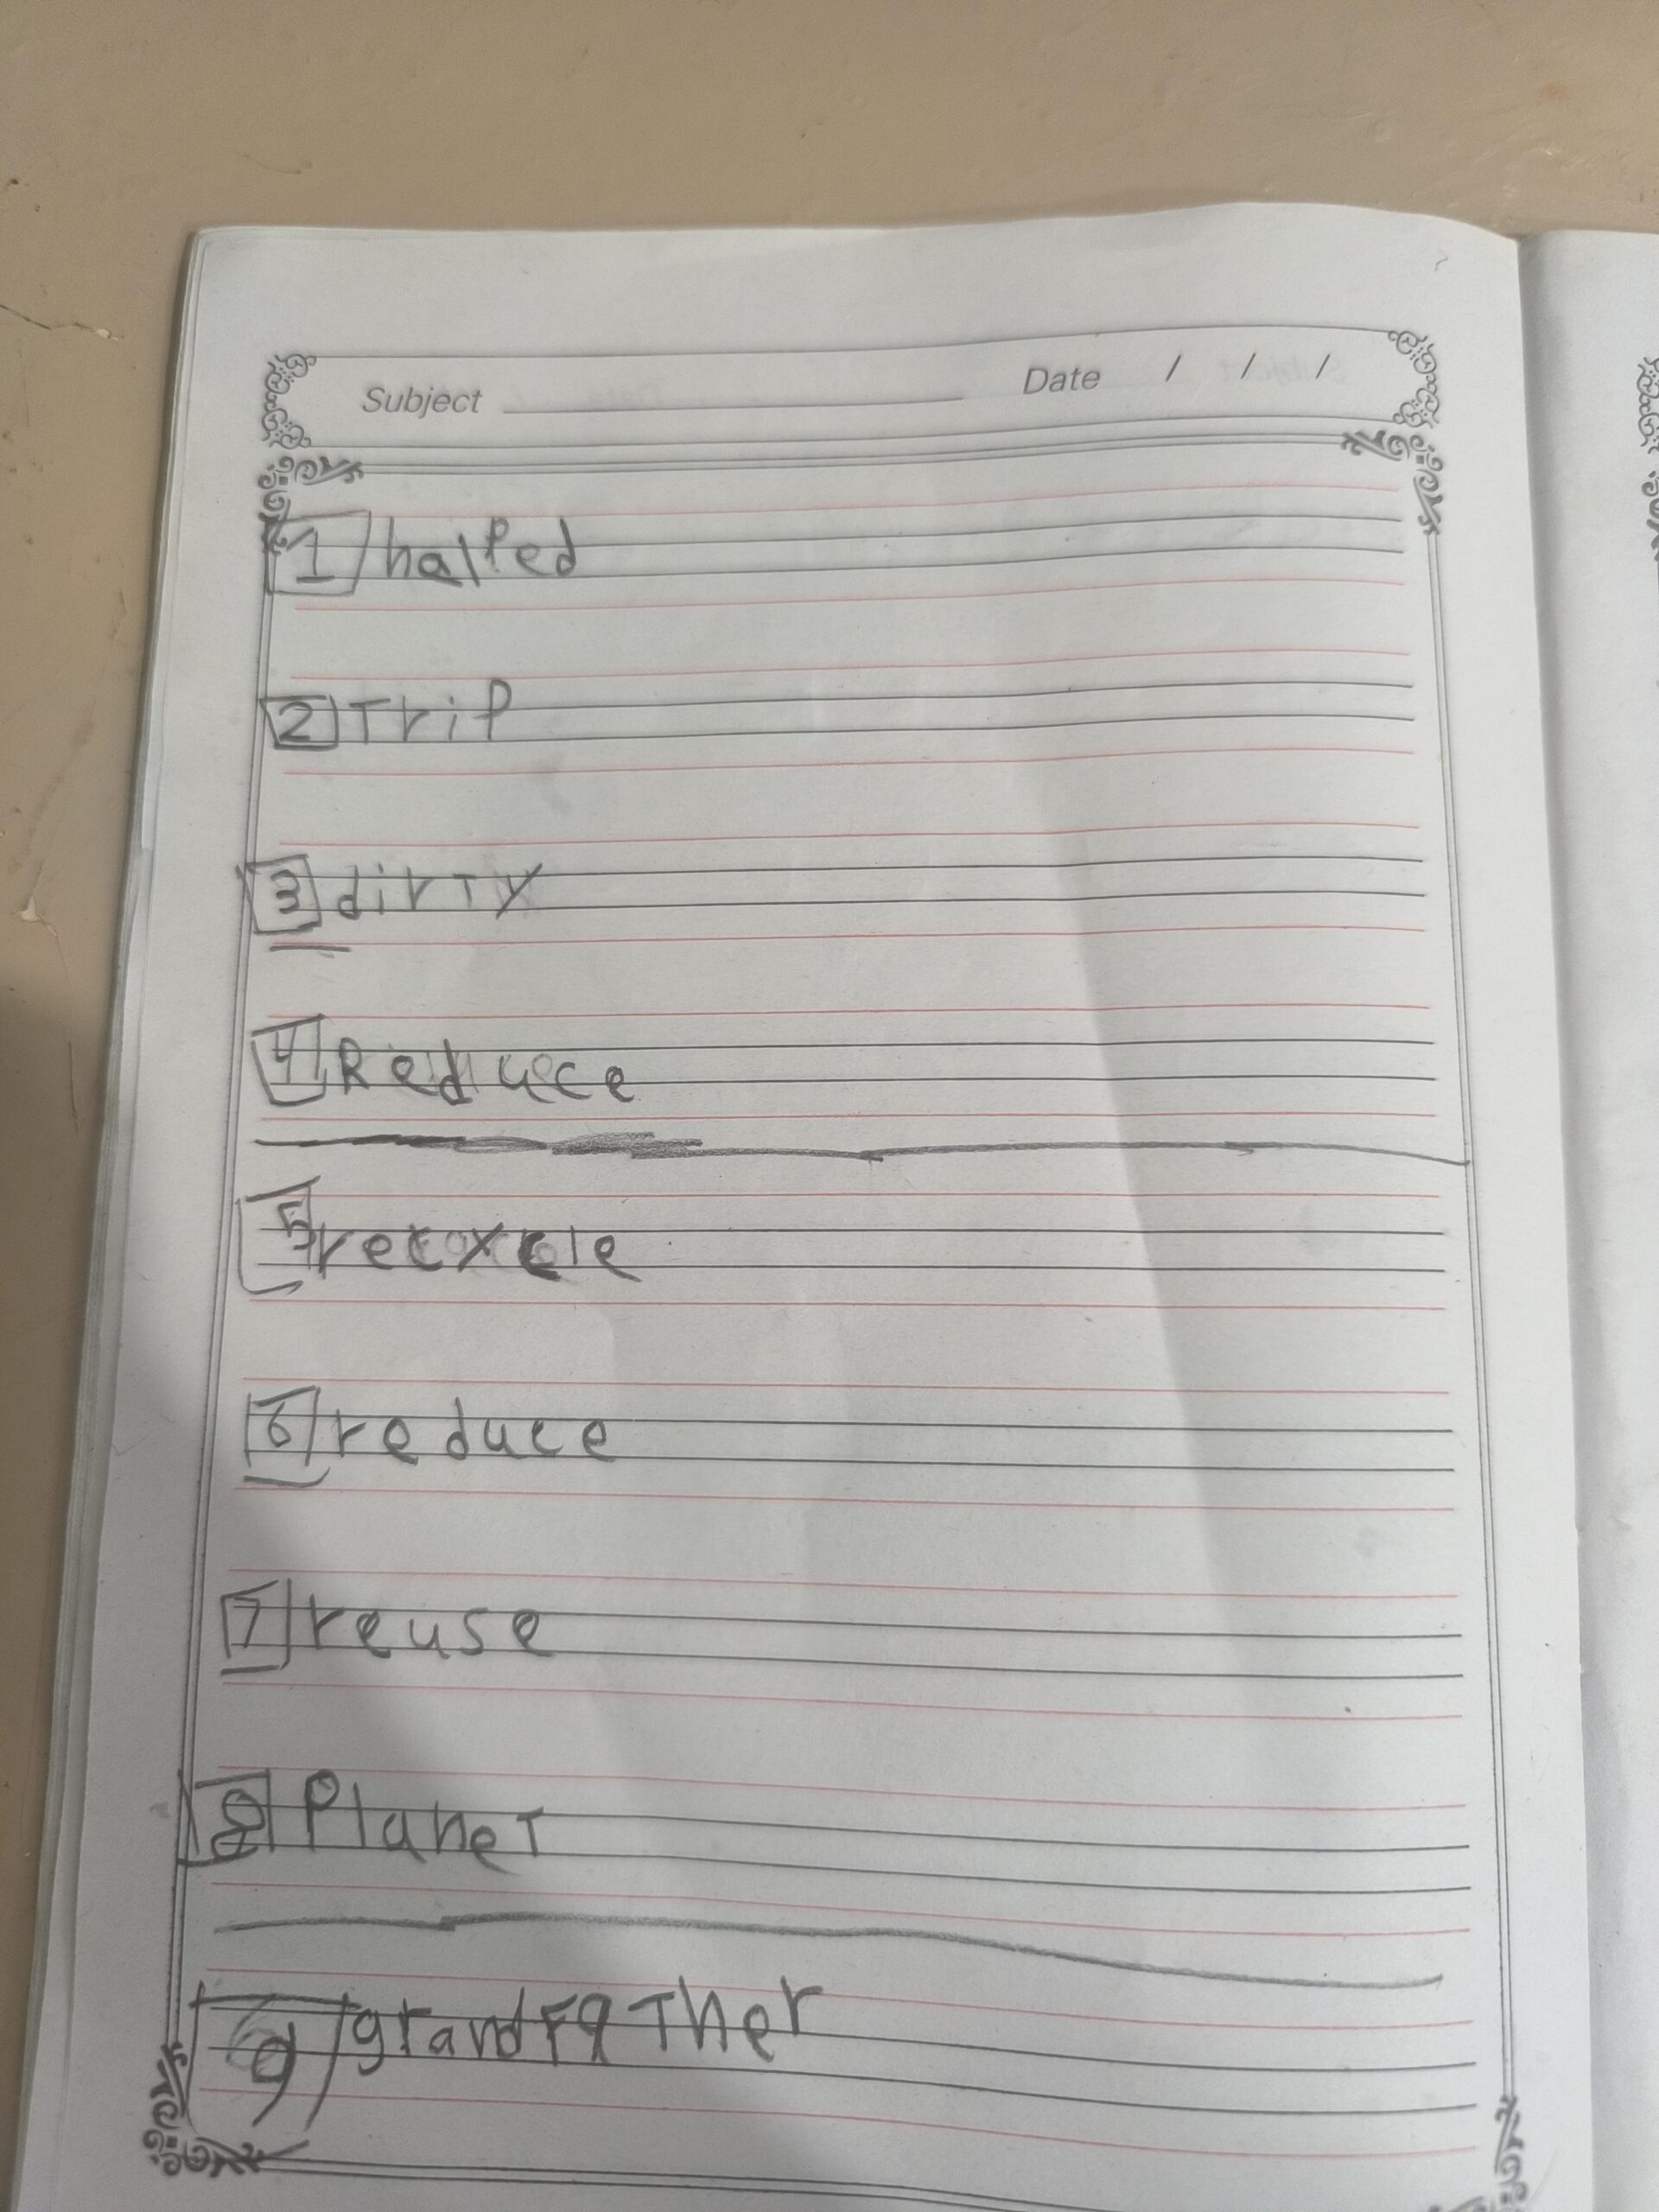 Subject Date / / /
1 halped
2 Trip
3 dirty
4 Reduce
5 recycle
6 reduce
7 reuse
8 Planet
9 grandFaTher